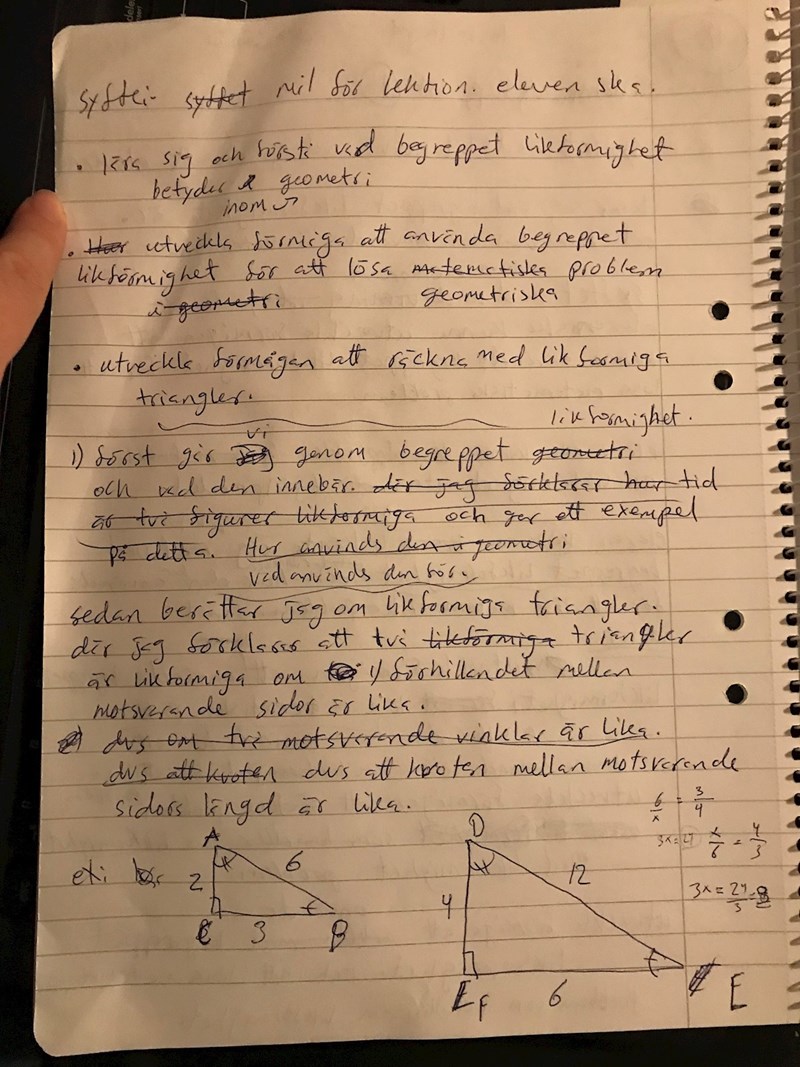 syftei- syftet mål för lektion. eleven ska.
• lära sig och förstå vad begreppet likformighet
betyder geometri
inom
• utveckla förmåga att använda begreppet
likförmighet för att lösa matematiska problem
i geometri geometriska
• utveckla förmågan att räckna med likformiga
triangler.
likformighet.
vi
1) först går jag genom begreppet geometri
och vad den innebär. där jag förklarar hur tid
är två figurer likformiga och ger ett exempel
på detta. Hur används den i geometri
vad används den för.
sedan berättar jag om likformiga triangler.
där jag förklarar att två likförmiga triangler
är likformiga om 1) förhållandet mellan
motsvarande sidor är lika.
2) dvs om två motsvarande vinklar är lika.
dvs att kvoten dvs att kvoten mellan motsvarande
sidors längd är lika.
6/x = 3/4
3x=24 x/6 = 4/3
3x = 24/3 = 8
ex:
A
2 6
x
C 3 B
D
4 12
x
F 6 E